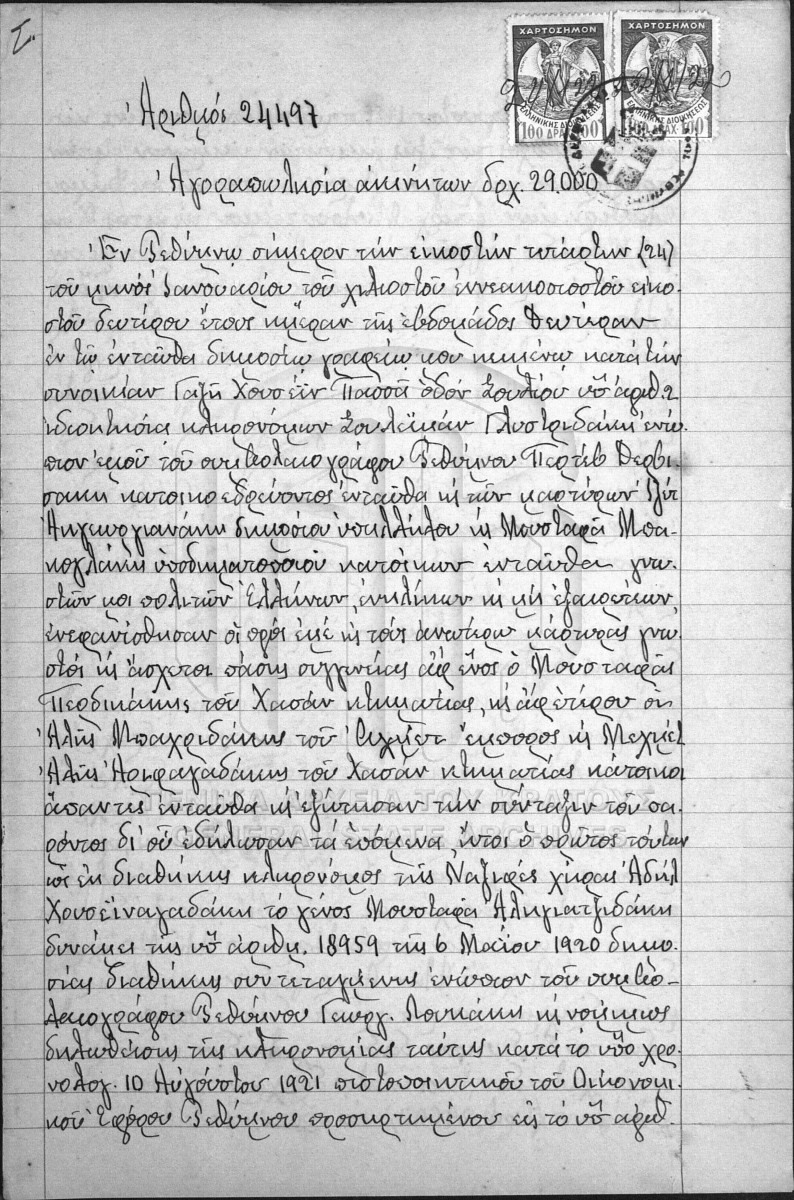 Τ.
ΧΑΡΤΟΣΗΜΟΝ ΧΑΡΤΟΣΗΜΟΝ
ΕΛΛΗΝΙΚΗΣ ΔΙΟΙΚΗΣΕΩΣ ΕΛΛΗΝΙΚΗΣ ΔΙΟΙΚΗΣΕΩΣ
100 ΔΡΑΧ 100 100 ΔΡΑΧ 100
Ἀριθμός 24497
Ἀγοραπωλησία ἀκινήτων δρχ. 29.000
Ἐν Ρεθύμνῳ σήμερον τήν εἰκοστήν τετάρτην (24)
τοῦ μηνός Ἰανουαρίου τοῦ χιλιοστοῦ ἐννεακοσιοστοῦ εἰκο-
στοῦ δευτέρου ἔτους ἡμέραν τῆς ἑβδομάδος Δευτέραν
ἐν τῷ ἐνταῦθα δημοσίῳ γραφείῳ μου κειμένῳ κατά τήν
συνοικίαν Γαζῆ Χουσεΐν Πασσᾶ ὁδόν Σουλίου ὑπ' ἀριθ. 2
ἰδιοκτησία κληρονόμων Σουλεϊμάν Γλυστριδάκη ἐνώ-
πιον ἐμοῦ τοῦ συμβολαιογράφου Ρεθύμνου Περτέβ Δερβι-
σακη κατοικοεδρεύοντος ἐνταῦθα κ τῶν μαρτύρων
δημοσίου ὑπαλλήλου κ Μουσταφᾶ Μπα-
κογλάκη ὑποδηματοποιοῦ κατοίκων ἐνταῦθα γνω-
στῶν μοι πολιτῶν Ἑλλήνων, ἐνηλίκων κ μή ἐξαιρετέων,
ἐνεφανίσθησαν οἱ πρός ἐμέ κ τούς ἀνωτέρω μάρτυρας γνω-
στοί κ ἄσχετοι πάσης συγγενείας ἀφ' ἑνός ὁ Μουσταφᾶς
Περδικάκης τοῦ Χασάν κτηματίας, κ ἀφ' ἑτέρου οἱ
Ἀλῆς Μπαχριδάκης τοῦ ἔμπορος κ Μεχμέτ
Ἀλῆς Ἀριφαγαδάκης τοῦ Χασάν κτηματίας κάτοικοι
ἅπαντες ἐνταῦθα κ ἐξῄτησαν τήν σύνταξιν τοῦ πα-
ρόντος δι' οὗ ἐδήλωσαν τά ἑπόμενα, ὅτι ὁ πρῶτος τούτων
ὡς ἐκ διαθήκης κληρονόμος τῆς Ναζιρές χήρας Ἀδήλ
Χουσεϊναγαδάκη τό γένος Μουσταφᾶ Ἀληγιατζιδάκη
δυνάμει τῆς ὑπ' ἀριθμ. 18959 τῆς 6 Μαΐου 1920 δημο-
σίας διαθήκης συντεταγμένης ἐνώπιον τοῦ συμβο-
λαιογράφου Ρεθύμνου Γεωργ. κ νομίμως
δηλωθείσης τῆς κληρονομίας ταύτης κατά τό ὑπό χρο-
νολογ. 10 Αὐγούστου 1921 πιστοποιητικόν τοῦ Οἰκονομι-
κοῦ Ἐφόρου Ρεθύμνου προσηρτημένου εἰς τό ὑπ' ἀριθ.
ΓΕΝΙΚΑ ΑΡΧΕΙΑ ΤΟΥ ΚΡΑΤΟΥΣ
GENERAL STATE ARCHIVES